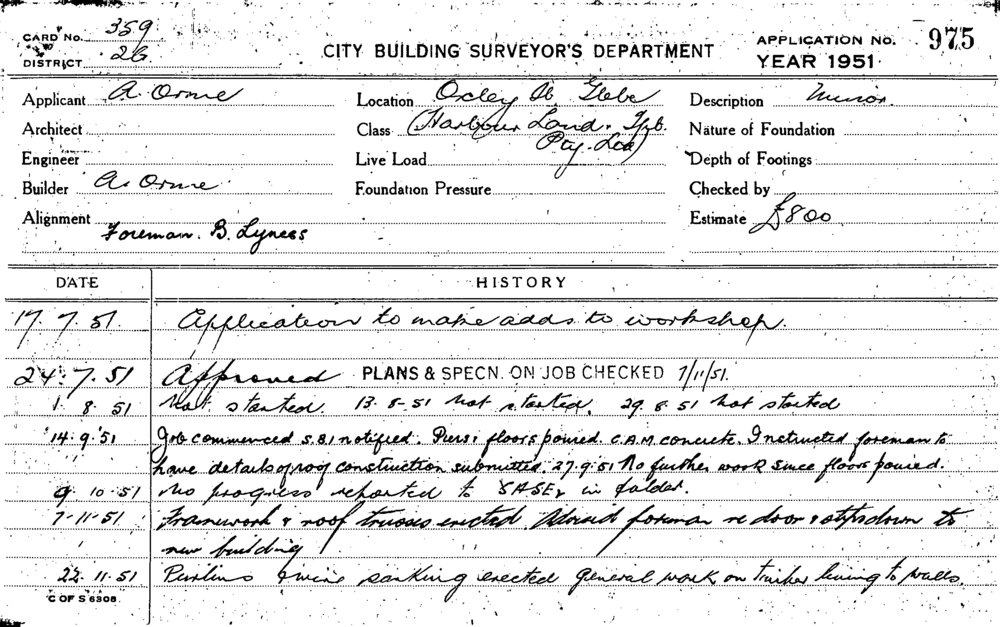 CARD No. 359
DISTRICT 26
CITY BUILDING SURVEYOR'S DEPARTMENT
APPLICATION No. 975
YEAR 1951
Applicant A. Orme
Location Oxley St. Glebe
Description Minor.
Architect
Class (Harbour Land. Tpt.
Pty. Ltd)
Nature of Foundation
Engineer
Live Load
Depth of Footings
Builder A. Orme
Foundation Pressure
Checked by
Alignment
Estimate £800
Foreman. B. Lyness
DATE HISTORY
17. 7. 51. Application to make adds to workshop.
24. 7. 51 Approved PLANS & SPECN. ON JOB CHECKED 7/11/51.
1 8. 51 Not started. 13-8-51 Not started. 29. 8. 51 Not started
14. 9. 51 Job commenced S.81 notified. Piers & floors poured. C.A.M. concrete. Instructed foreman to
have details of roof construction submitted. 27.9.51 No further work since floors poured.
9. 10. 51 No progress reported to in folder.
7-11-51. Framework & roof trusses erected. Advised foreman re door & steps down to
new building
22. 11. 51 Purlins & wire sarking erected general work on timber lining to walls.
C OF S 6308